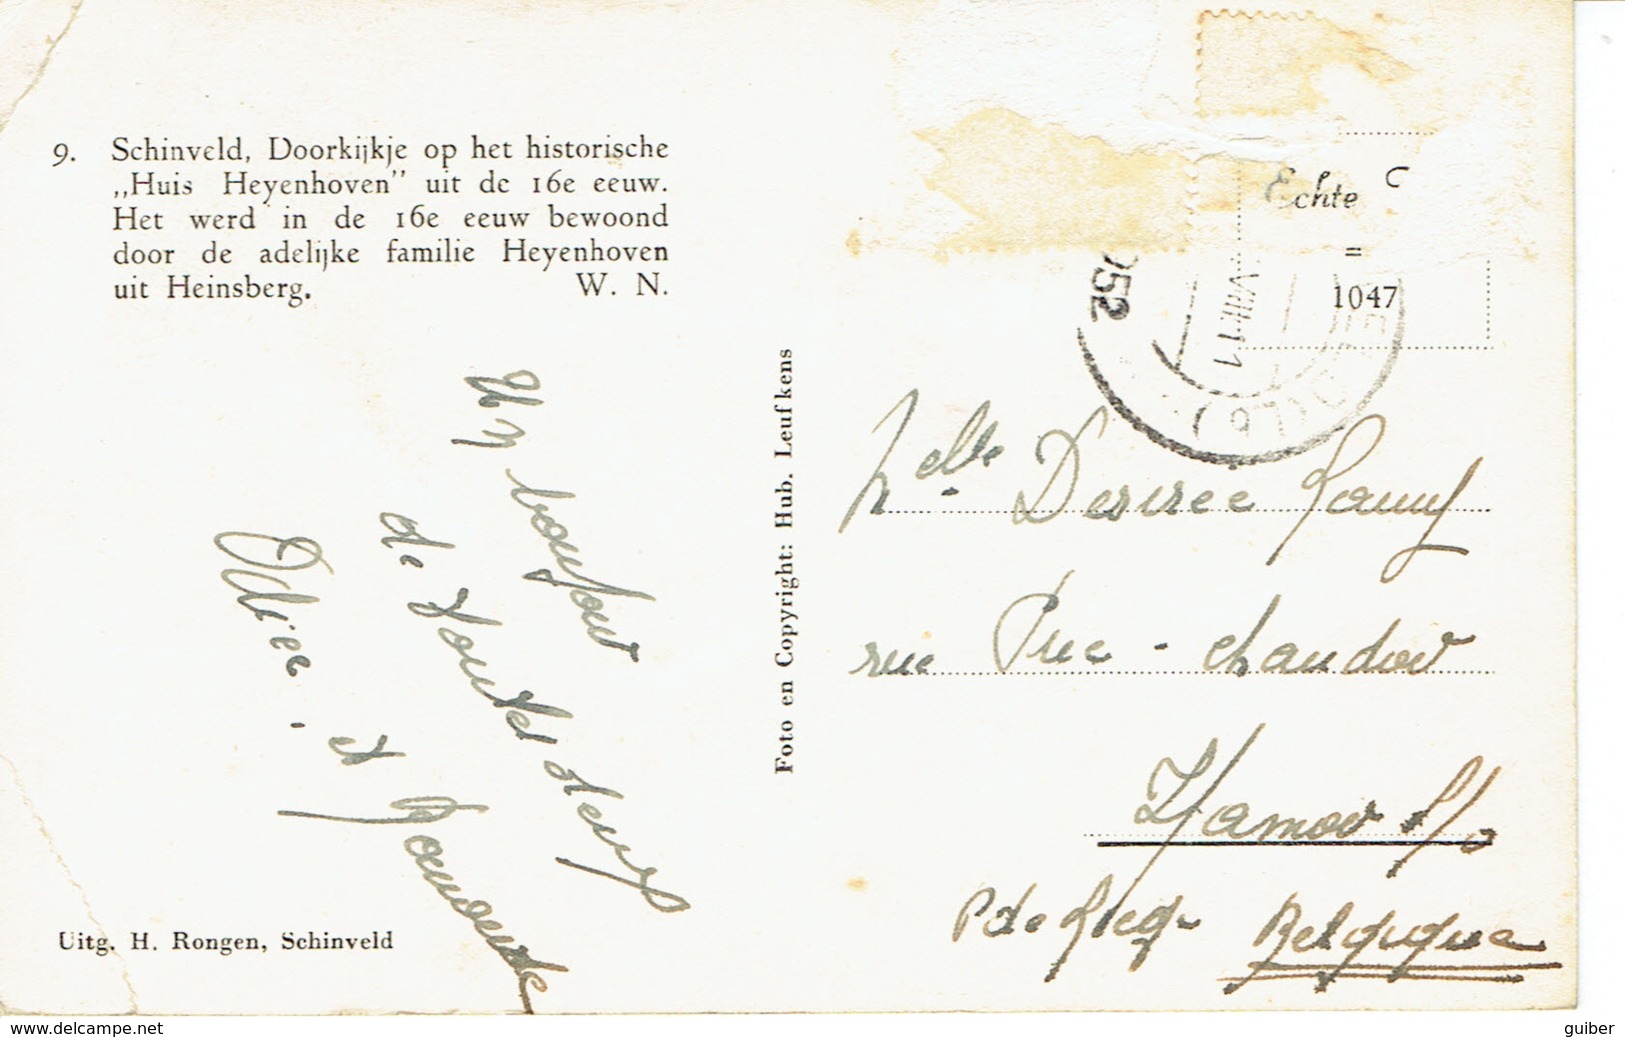 9. Schinveld, Doorkijkje op het historische
„Huis Heyenhoven” uit de 16e eeuw.
Het werd in de 16e eeuw bewoond
door de adelijke familie Heyenhoven
uit Heinsberg. W. N.
Un bonjour
de tous les deux
et
Uitg. H. Rongen, Schinveld
Foto en Copyright: Hub. Leufkens
Echte
=
1047
952
VIII 11
Melle Desiree
rue
P de Liege Belgique
www.delcampe.net
guiber